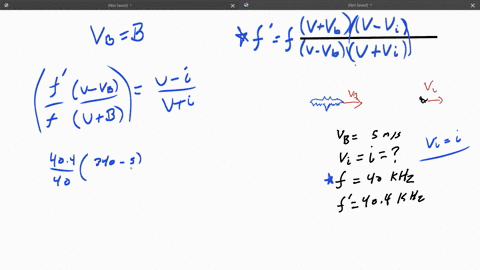 (Not Saved)
(Not Saved)
V_B = B
(f'/f (v-V_B)/(v+B)) = v-i/v+i
40.4/40 (340-5)
*f' = f (V+V_b)(V-V_i)/(V-V_b)(V+V_i)
V_B
V_i
V_B = 5 m/s
V_i = i = ?
*f = 40 KHz
f' = 40.4 KHz
V_i = i